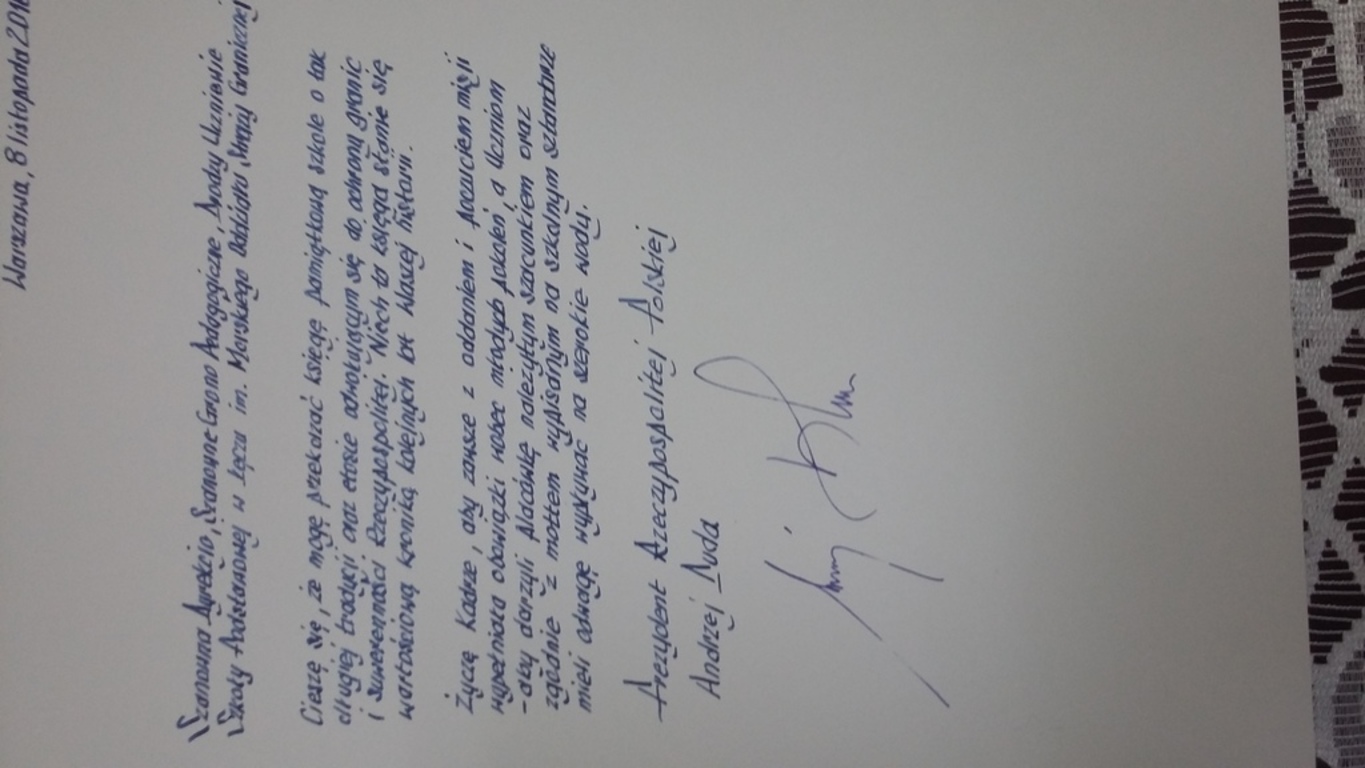 Warszawa, 8 listopada 201
Szanowna Dyrekcjo, Szanowne Grono Pedagogiczne, Drodzy Uczniowie
Szkoły Podstawowej w Łęczu im. Morskiego Oddziału Straży Granicznej
Cieszę się, że mogę przekazać księgę pamiątkową szkole o tak
długiej tradycji oraz etosie odwołującym się do ochrony granic
i suwerenności Rzeczypospolitej. Niech ta księga stanie się
wartościową kroniką kolejnych lat Waszej historii.
Życzę Kadrze, aby zawsze z oddaniem i poczuciem misji
wypełniała obowiązki wobec młodych pokoleń, a Uczniom
- aby darzyli Placówkę należytym szacunkiem oraz
zgodnie z mottem wypisanym na szkolnym sztandarze
mieli odwagę wypływać na szerokie wody.
Prezydent Rzeczypospolitej Polskiej
Andrzej Duda